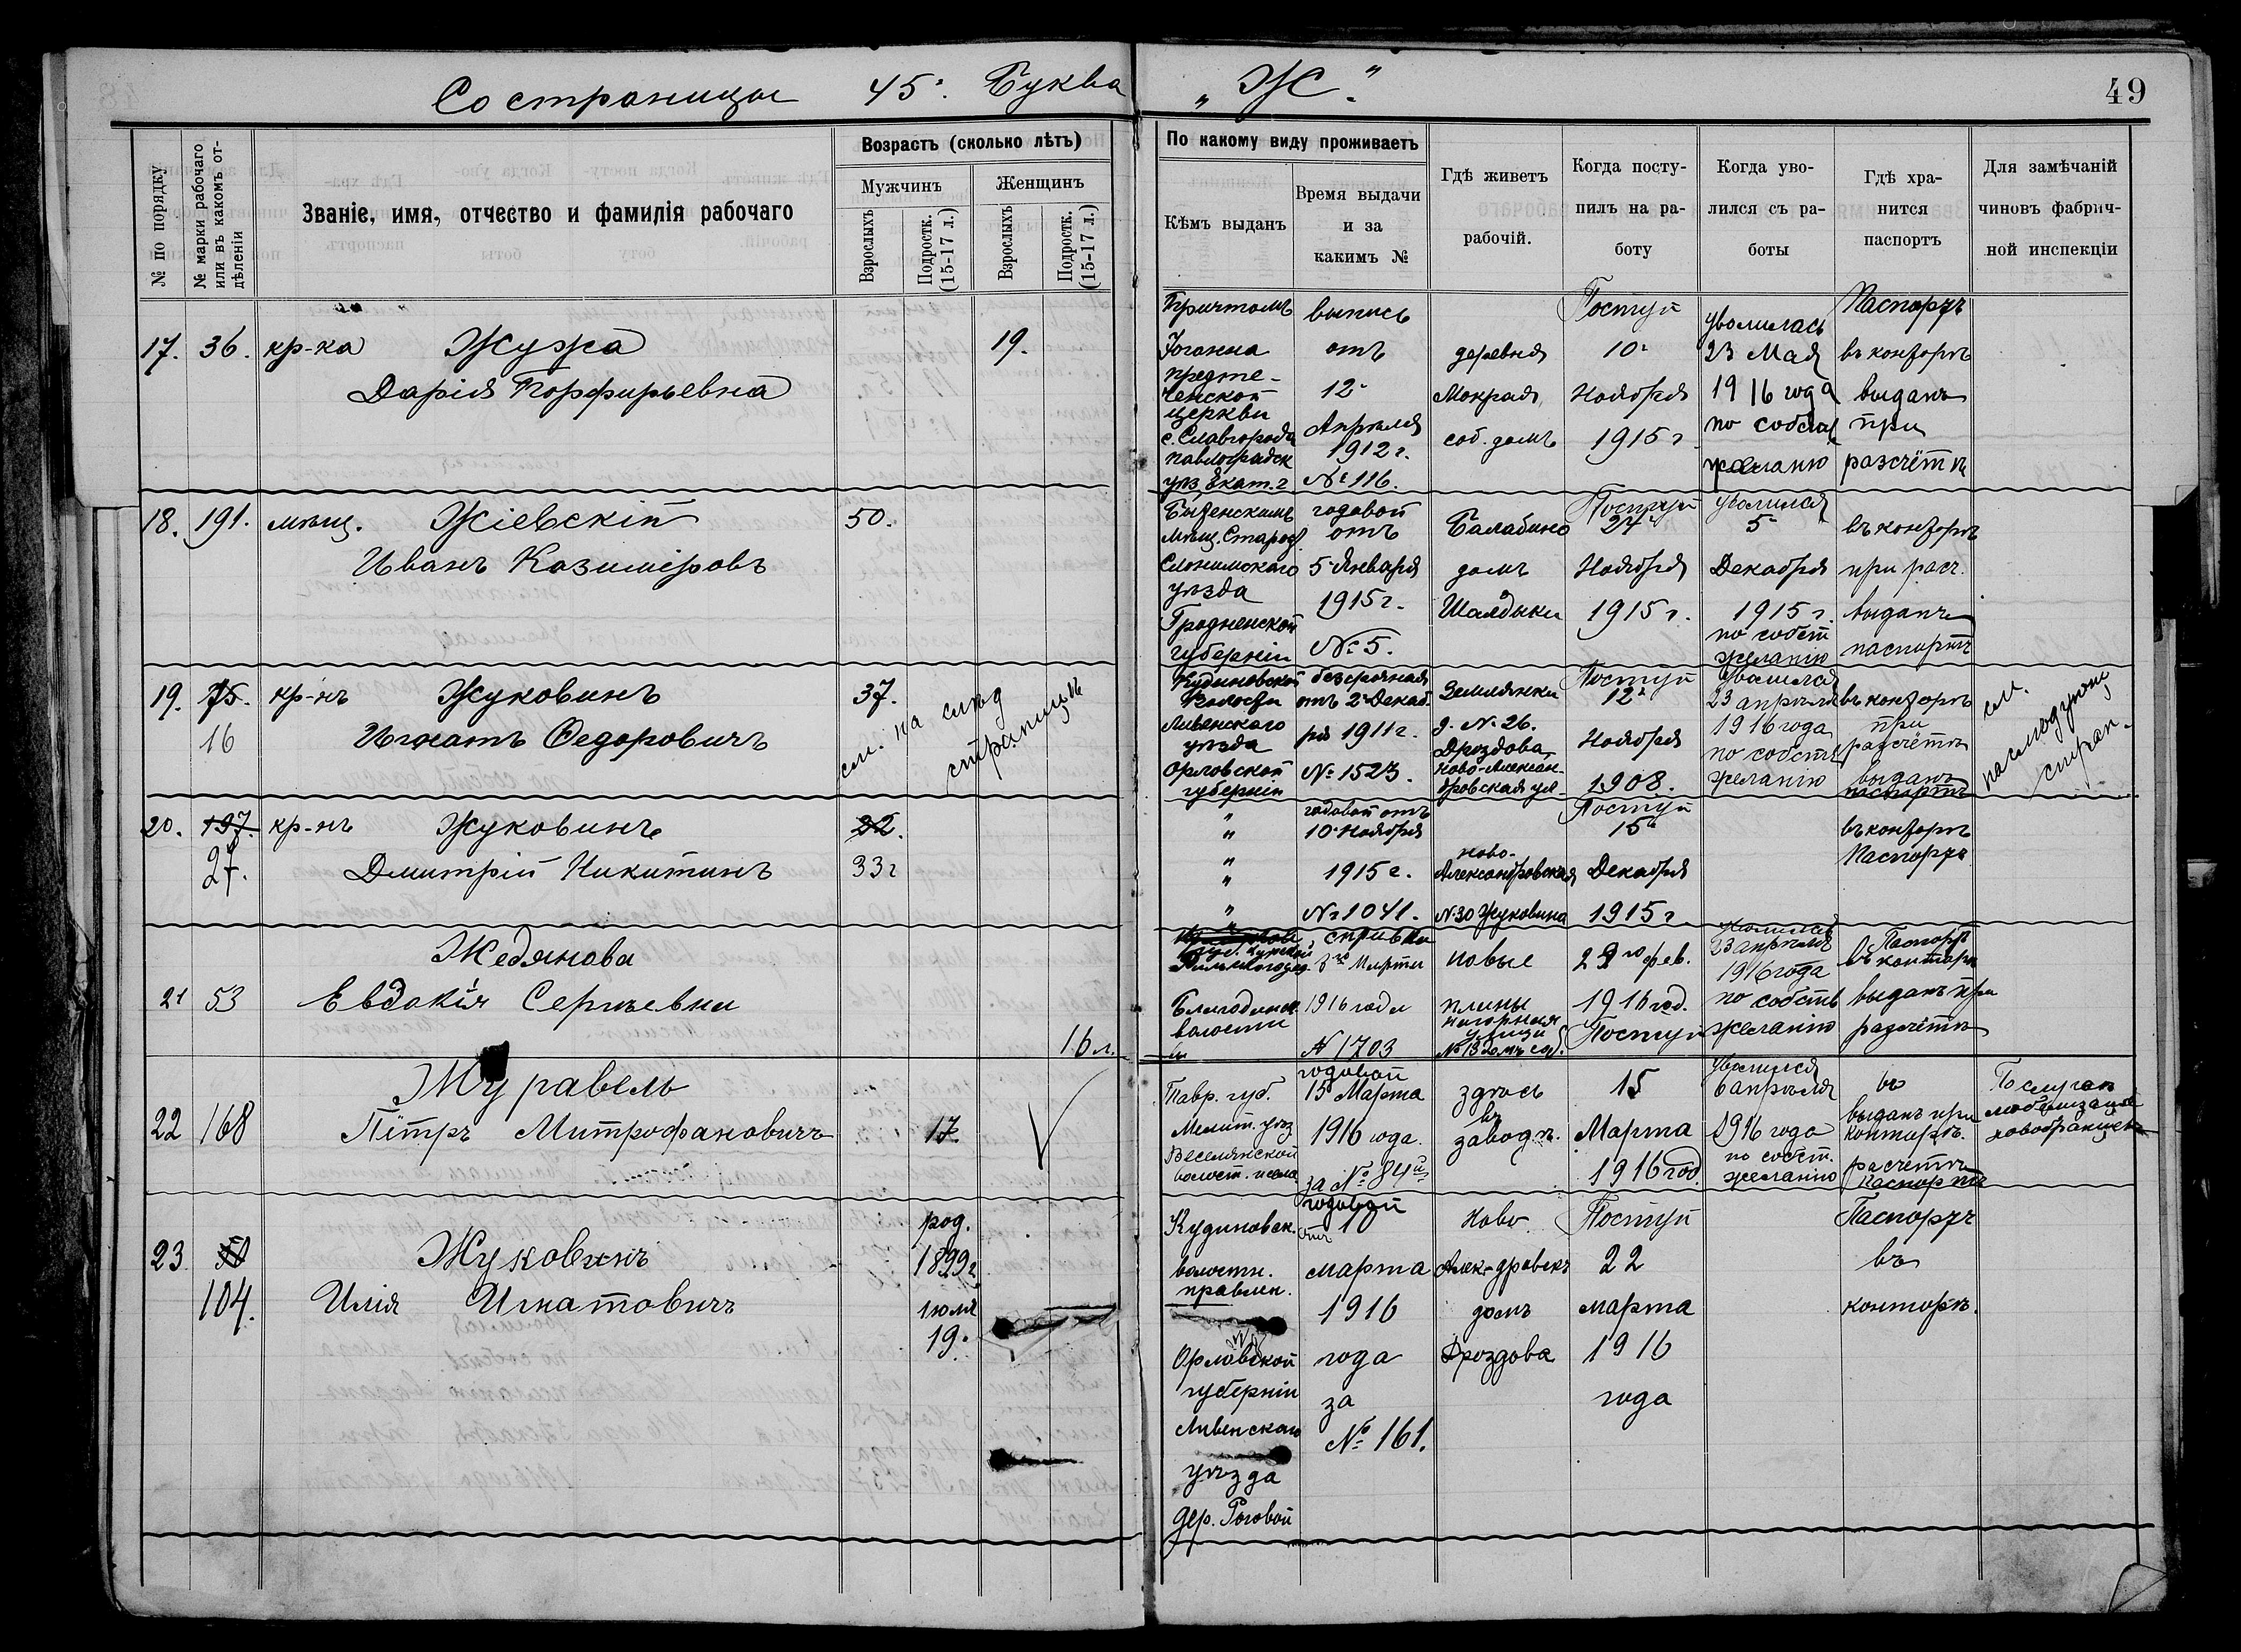 Со страницы 45. Буква „Ж."
49
№ по порядку
№ марки рабочаго или въ какомъ отдѣленіи
Званіе, имя, отчество и фамилія рабочаго
Возрастъ (сколько лѣтъ)
Мужчинъ
Женщинъ
Взрослыхъ
Подростк. (15-17 л.)
Взрослыхъ
Подростк. (15-17 л.)
По какому виду проживаетъ
Кѣмъ выданъ
Время выдачи
и за
какимъ №
Гдѣ живетъ
рабочій.
Когда посту-
пилъ на ра-
боту
Когда уво-
лился съ ра-
боты
Гдѣ хра-
нится
паспортъ
Для замѣчаній
чиновъ фабрич-
ной инспекціи
17. 36. кр-ка Жужа
Дарія Порфирьевна
19.
Причтомъ
Іоанна
предте-
ченской
церкви
с. Славгорода
павлоградск
уѣз. Екат. г
выпись
отъ
12
Апрѣля
1912 г.
№ 116.
деревня
Мокрая,
соб. домъ
Поступ
10
Ноября
1915 г
уволилась
23 Мая
1916 года
по собств
желанію
Паспортъ
въ конторѣ
выданъ
при
разсчётѣ
18. 191. мѣщ. Жіевскій
Иванъ Казиміровъ
50.
мѣщ. Старос
Слонимскаго
уѣзда
Гродненской
губерніи
годовой
отъ
5 Января
1915 г.
№ 5.
Балабино
домъ
Шалдыки
Поступ
24
Ноября
1915 г.
уволился
5
Декабря
1915 г.
по собст
желанію
въ конторѣ
при расч.
выданъ
паспортъ
19. 75. кр-нъ Жуковинъ
16 Игнатъ Федоровичъ
37.
см. на слѣд
страницѣ
Кудиновской
Волости
Ливенскаго
уѣзда
Орловской
губерніи
безсрочная
отъ 2 Декаб-
ря 1911 г.
№ 1523.
Землянки
д. № 26.
Дроздова
Ново-Алексан-
дровская ул
Поступ
12
Ноября
1908.
Уволился
23 апрѣля
1916 года
по собств
желанію
въ конторѣ
при
разсчётѣ
выданъ
паспортъ
см.
на слѣдующ
стран.
20. 197 кр-нъ Жуковинъ
27. Дмитрій Никитинъ
22.
33 г
"
"
"
"
"
"
годовой отъ
10 Ноября
1915 г.
№ 1041.
Ново-
Александровская
№ 30 Жуковина
Поступ
15
Декабря
1915 г
въ конторѣ
Паспортъ
Жедянова
21 53 Евдокія Сергѣевна
16 л.
волости
справка
Марта
1916 года
№ 1703
новые
планы
нагорная
улица
№ 13 домъ соб.
29го фев.
1916 год.
Поступ
23 апрѣля
1916 года
по собств
желанію
Паспортъ
въ конторѣ
выданъ при
разчётѣ
Журавель
22 168 Пётръ Митрофановичъ
17
Тавр. губ.
Мелит. уѣз
Веселянской
годовой
15 Марта
1916 года.
за № 84й
здѣсь
въ
заводѣ.
15
Марта
1916 год.
Уволился
6 апрѣля
1916 года
по собст.
желанію
въ
выданъ при
конторѣ.
расчетѣ
Паспортъ
По случаю
мобилизаціи
новобранцевъ
23 Жуковинъ
104. Илія Игнатовичъ
род.
1899 г.
іюля
19.
Кудиновск.
волостн.
правлен.
Орловской
губерніи
Ливенскаго
уѣзда
Дер. Роговой
годовой
отъ 10
марта
1916
года
за
№ 161.
Ново
Алек-дровскъ
домъ
Дроздова
Поступ
22
марта
1916
года
Паспортъ
въ
конторѣ.